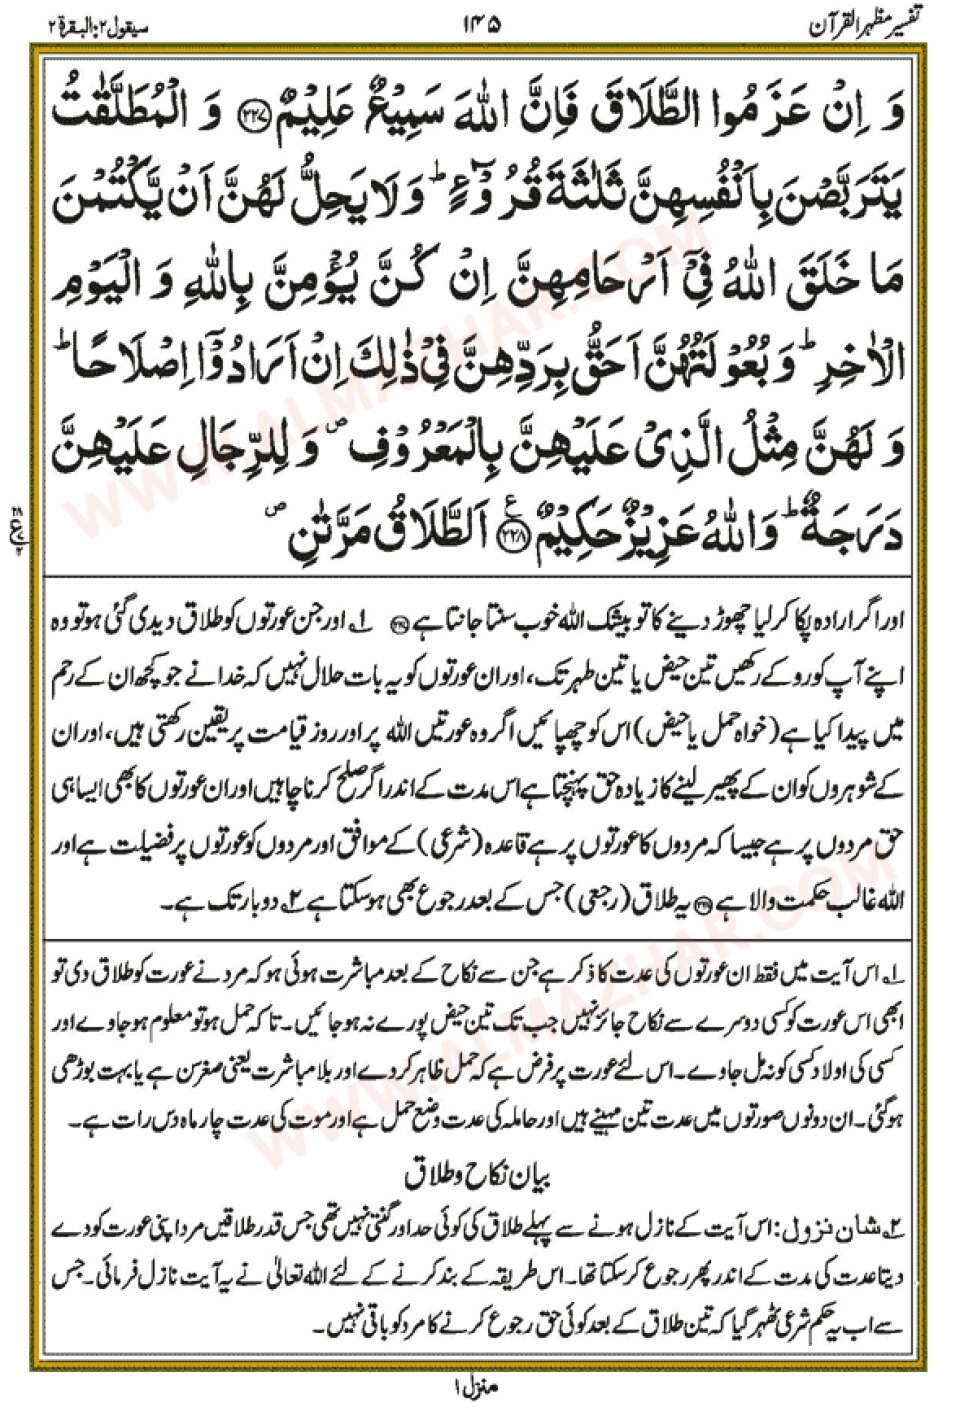 تفسیر مظہر القرآن
۱۴۵
سیقول ۲: البقرۃ ۲
وَ اِنْ عَزَمُوا الطَّلَاقَ فَاِنَّ اللّٰهَ سَمِیْعٌ عَلِیْمٌ ﴿۲۲۷﴾ وَ الْمُطَلَّقٰتُ
یَتَرَبَّصْنَ بِاَنْفُسِهِنَّ ثَلٰثَةَ قُرُوْٓءٍ ؕ وَ لَا یَحِلُّ لَهُنَّ اَنْ یَّكْتُمْنَ
مَا خَلَقَ اللّٰهُ فِیْۤ اَرْحَامِهِنَّ اِنْ كُنَّ یُؤْمِنَّ بِاللّٰهِ وَ الْیَوْمِ
الْاٰخِرِ ؕ وَ بُعُوْلَتُهُنَّ اَحَقُّ بِرَدِّهِنَّ فِیْ ذٰلِكَ اِنْ اَرَادُوْۤا اِصْلَاحًا ؕ
وَ لَهُنَّ مِثْلُ الَّذِیْ عَلَیْهِنَّ بِالْمَعْرُوْفِ ۪ وَ لِلرِّجَالِ عَلَیْهِنَّ
دَرَجَةٌ ؕ وَ اللّٰهُ عَزِیْزٌ حَكِیْمٌ ﴿۲۲۸﴾ ع اَلطَّلَاقُ مَرَّتٰنِ ۪
اور اگر ارادہ پکا کر لیا چھوڑ دینے کا تو بیشک اللہ خوب سنتا جانتا ہے ﴿۲۲۷﴾ ۱؎ اور جن عورتوں کو طلاق دیدی گئی ہو تو وہ
اپنے آپ کو روکے رکھیں تین حیض یا تین طہر تک، اور ان عورتوں کو یہ بات حلال نہیں کہ خدا نے جو کچھ ان کے رحم
میں پیدا کیا ہے (خواہ حمل یا حیض) اس کو چھپائیں اگر وہ عورتیں اللہ پر اور روز قیامت پر یقین رکھتی ہیں، اور ان
کے شوہروں کو ان کے پھیر لینے کا زیادہ حق پہنچتا ہے اس مدت کے اندر اگر صلح کرنا چاہیں اور ان عورتوں کا بھی ایسا ہی
حق مردوں پر ہے جیسا کہ مردوں کا عورتوں پر ہے قاعدہ (شرعی) کے موافق اور مردوں کو عورتوں پر فضیلت ہے اور
اللہ غالب حکمت والا ہے ﴿۲۲۸﴾ یہ طلاق (رجعی) جس کے بعد رجوع بھی ہو سکتا ہے ۲؎ دو بار تک ہے۔
۱؎ اس آیت میں فقط ان عورتوں کی عدت کا ذکر ہے جن سے نکاح کے بعد مباشرت ہوئی ہو کہ مرد نے عورت کو طلاق دی تو
ابھی اس عورت کو کسی دوسرے سے نکاح جائز نہیں جب تک تین حیض پورے نہ ہو جائیں۔ تاکہ حمل ہو تو معلوم ہو جاوے اور
کسی کی اولاد کسی کو نہ مل جاوے۔ اس لئے عورت پر فرض ہے کہ حمل ظاہر کر دے اور بلا مباشرت یعنی صغر سن ہے یا بہت بوڑھی
ہو گئی۔ ان دونوں صورتوں میں عدت تین مہینے ہیں اور حاملہ کی عدت وضع حمل ہے اور موت کی عدت چار ماہ دس رات ہے۔
بیان نکاح و طلاق
۲؎ شان نزول: اس آیت کے نازل ہونے سے پہلے طلاق کی کوئی حد اور گنتی نہیں تھی جس قدر طلاقیں مرد اپنی عورت کو دے
دیتا عدت کی مدت کے اندر پھر رجوع کر سکتا تھا۔ اس طریقہ کے بند کرنے کے لئے اللہ تعالیٰ نے یہ آیت نازل فرمائی۔ جس
سے اب یہ حکم شرعی ٹھہر گیا کہ تین طلاق کے بعد کوئی حق رجوع کرنے کا مرد کو باقی نہیں۔
منزل ۱
WWW.ALMAZHAR.COM
WWW.ALMAZHAR.COM